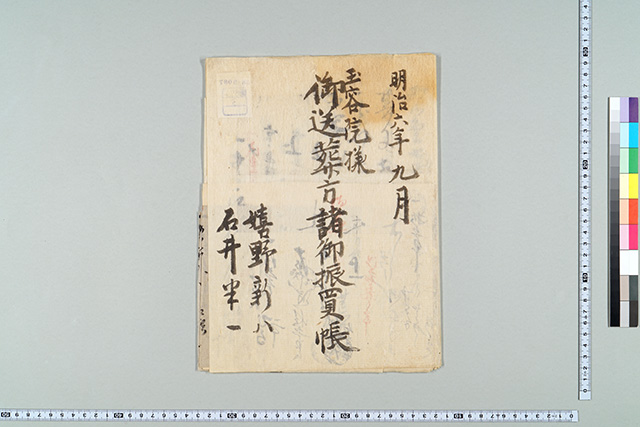 明治六年九月
玉容院様
御送葬方諸御振買帳
嬉野新八
石井半一